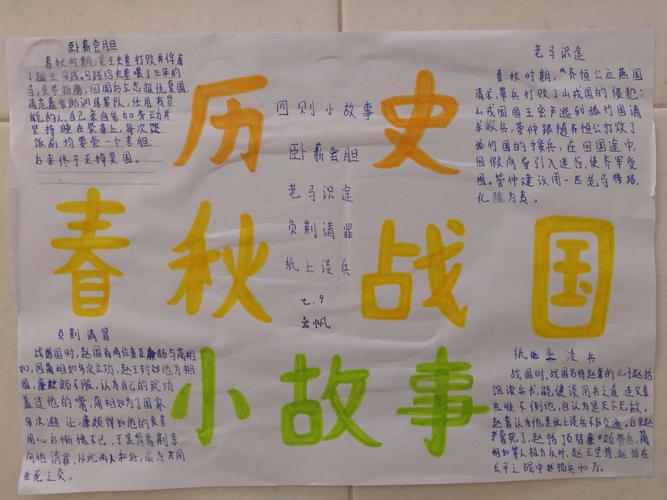 卧薪尝胆
春秋时期,吴王夫差打败并俘虏
了越王勾践。勾践给夫差喂了三年的
马,受尽折磨,回国后立志报仇复国,
任用有贤
能的人,自己亲自参加劳动并
坚持睡在柴草上,每次吃
饭前均要尝一个苦胆,
后来终于灭掉吴国。
历史
四则小故事
卧薪尝胆
老马识途
负荆请罪
纸上谈兵
七.9
老马识途
春秋时期,齐桓公应燕国
请求带兵打败了山戎国的侵犯;
山戎国国王密卢逃到孤竹国请
求救兵,管仲跟随齐桓公打败了
孤竹国的援兵,在回国途中
因假向导引入迷谷,使齐军受
困。管仲建议用一匹老马择路,
化险为夷。
春秋战国
负荆请罪
战国时,赵国有两位重臣廉颇与蔺相
如,因蔺相如多次立功,赵王封他为相
国,廉颇颇不服,认为自己的战功
盖过他的嘴,蔺相如为了国家
多次避让,廉颇得知他的良苦
用心后惭愧不已,于是背着荆条
向他请罪,从此两人和好,成为共同
生死之交。
小故事
纸上谈兵
战国时,战国名将赵奢的儿子赵括
饱读兵书,能健谈用兵之道,连父亲
也难不倒他,自认为是天下无敌。
赵奢认为他是纸上谈兵不切交通。后来赵
奢死了,赵括顶替廉颇带兵,蔺
相如等人极力反对,赵王坚持,赵括在
长平之战中被损兵40万。